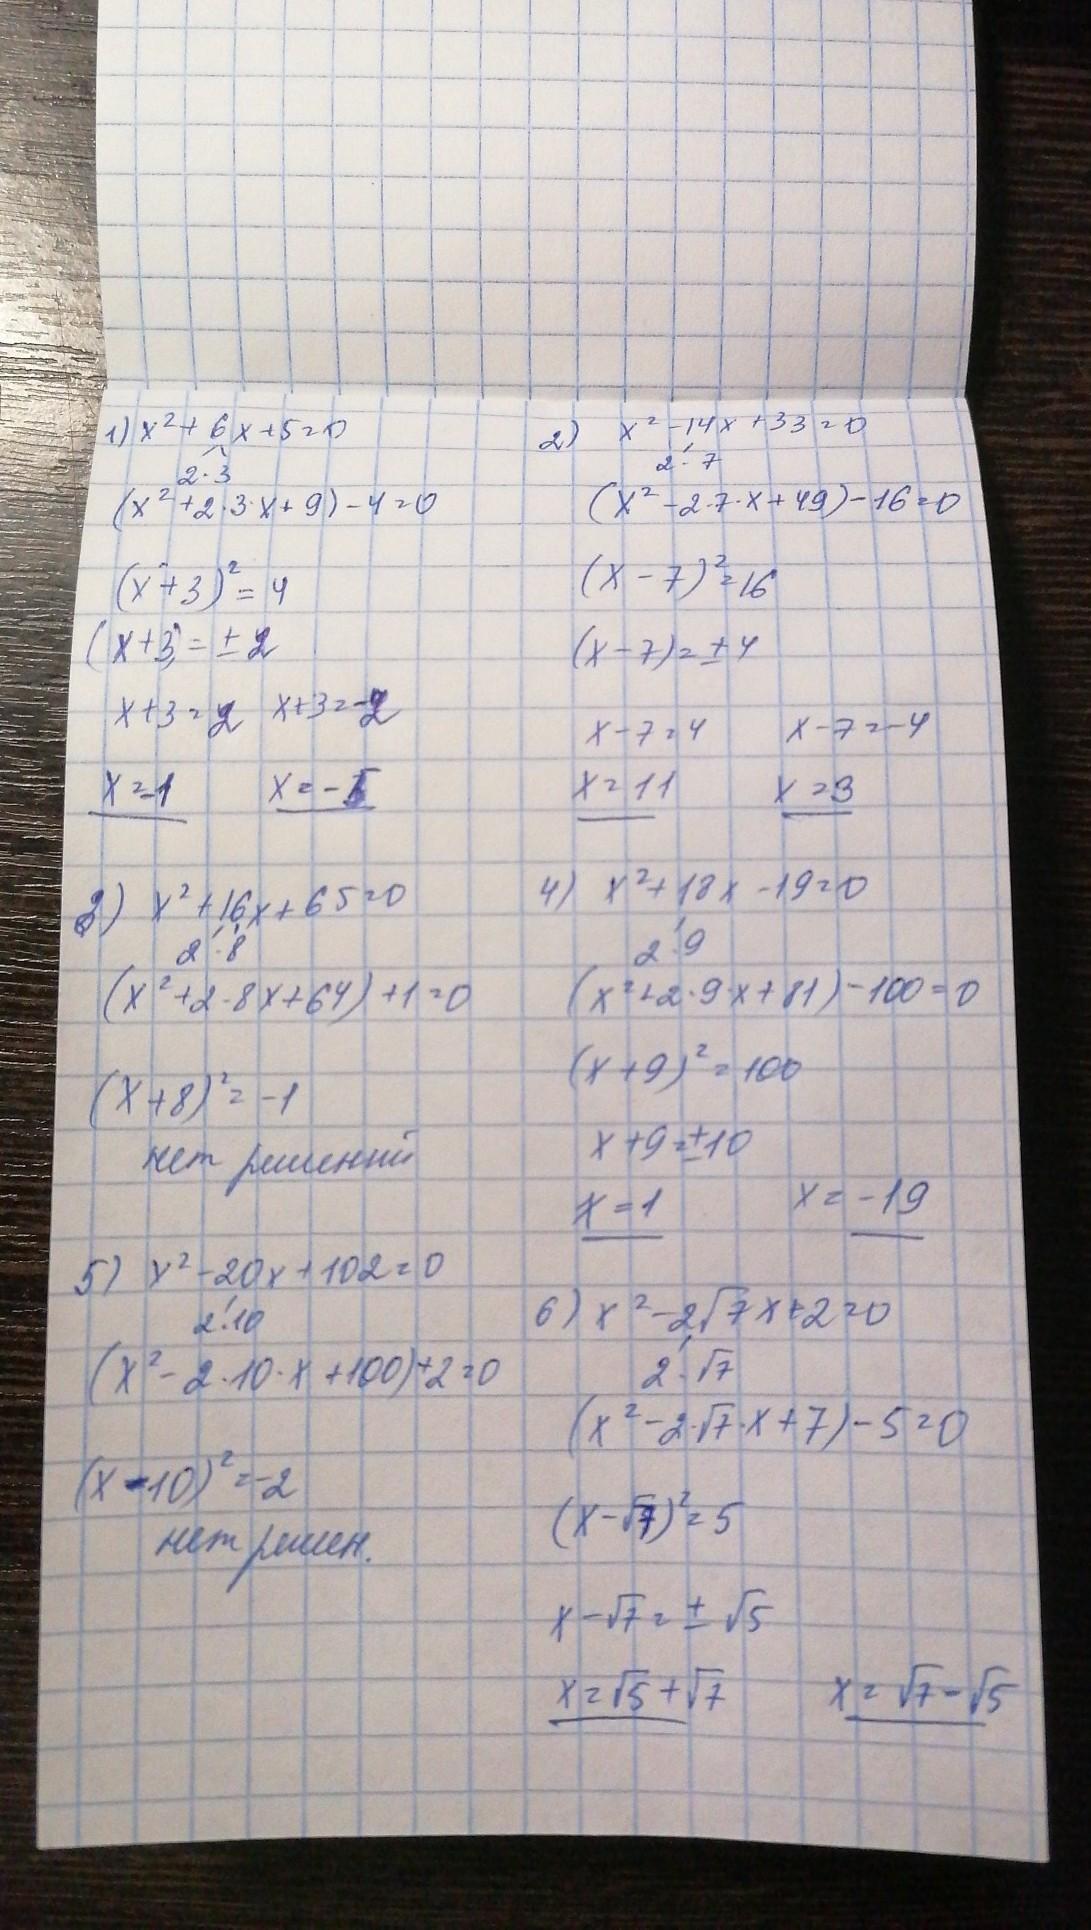 1) x² + 6x + 5 = 0
2·3
(x² + 2·3·x + 9) - 4 = 0
(x + 3)² = 4
(x + 3) = ± 2
x + 3 = 2   x + 3 = -2
x = -1   x = -5
2) x² - 14x + 33 = 0
2·7
(x² - 2·7·x + 49) - 16 = 0
(x - 7)² = 16
(x - 7) = ± 4
x - 7 = 4   x - 7 = -4
x = 11   x = 3
3) x² + 16x + 65 = 0
2·8
(x² + 2·8x + 64) + 1 = 0
(x + 8)² = -1
нет решений
4) x² + 18x - 19 = 0
2·9
(x² + 2·9·x + 81) - 100 = 0
(x + 9)² = 100
x + 9 = ± 10
x = 1   x = -19
5) x² - 20x + 102 = 0
2·10
(x² - 2·10·x + 100) + 2 = 0
(x - 10)² = -2
нет решен.
6) x² - 2√7x + 2 = 0
2·√7
(x² - 2·√7·x + 7) - 5 = 0
(x - √7)² = 5
x - √7 = ± √5
x = √5 + √7   x = √7 - √5